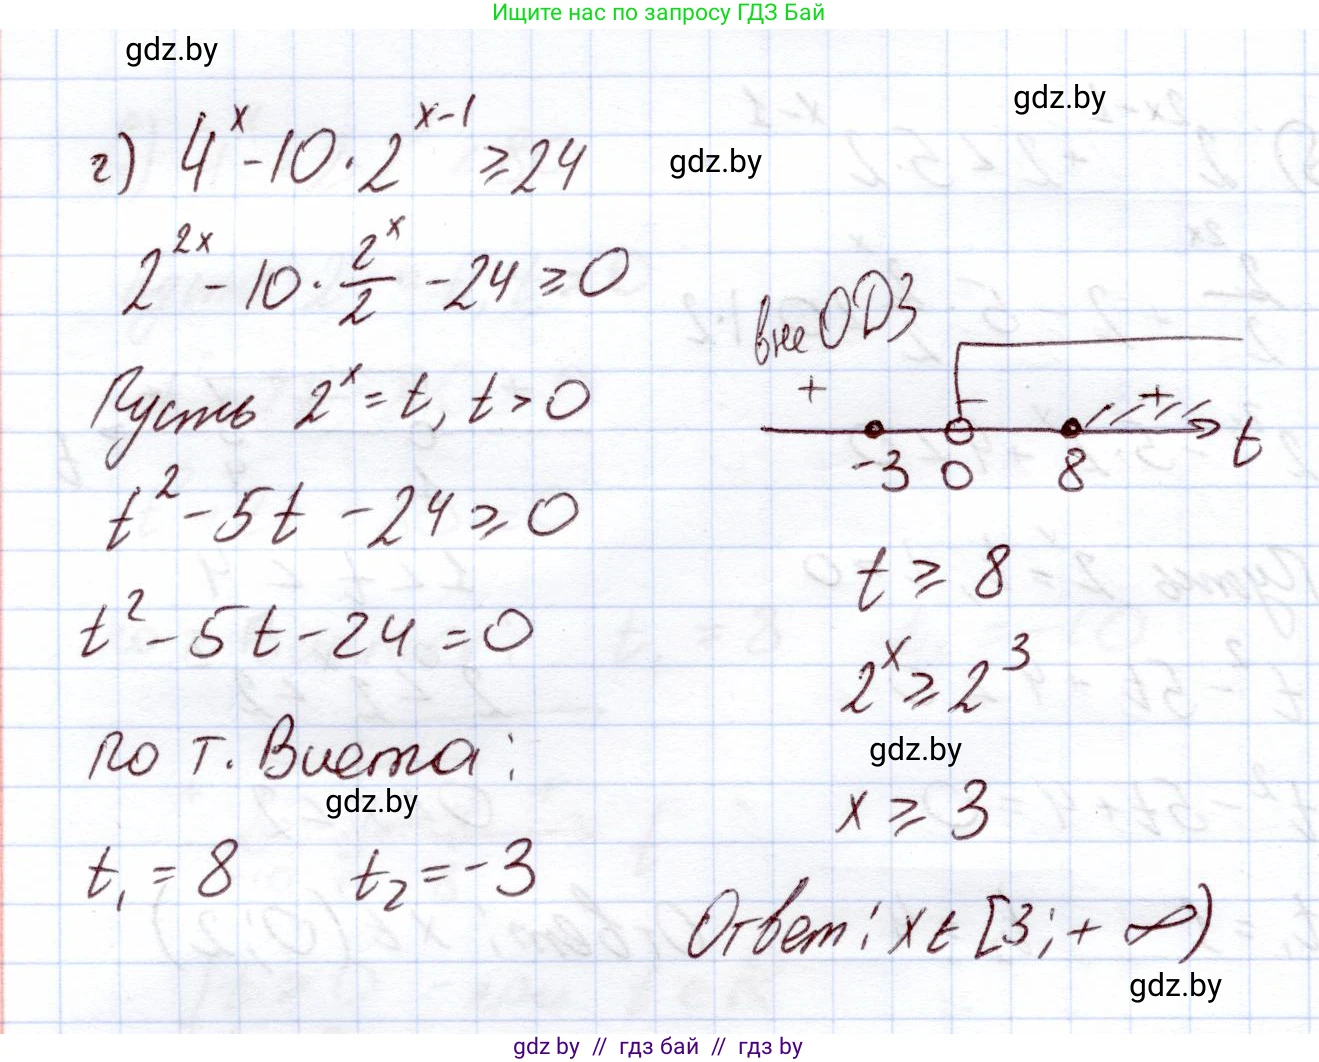 Ищите нас по запросу ГДЗ Бай
gdz.by
gdz.by
г) 4^x - 10 · 2^{x-1} ≥ 24
gdz.by
2^{2x} - 10 · \frac{2^x}{2} - 24 ≥ 0
Пусть 2^x = t, t > 0
t^2 - 5t - 24 ≥ 0
t^2 - 5t - 24 = 0
по т. Виета:
gdz.by
t_1 = 8 t_2 = -3
вне ОДЗ
+ - +
-3 0 8 t
t ≥ 8
2^x ≥ 2^3
gdz.by
x ≥ 3
Ответ: x ∈ [3; + ∞)
gdz.by
gdz by // гдз бай // гдз by